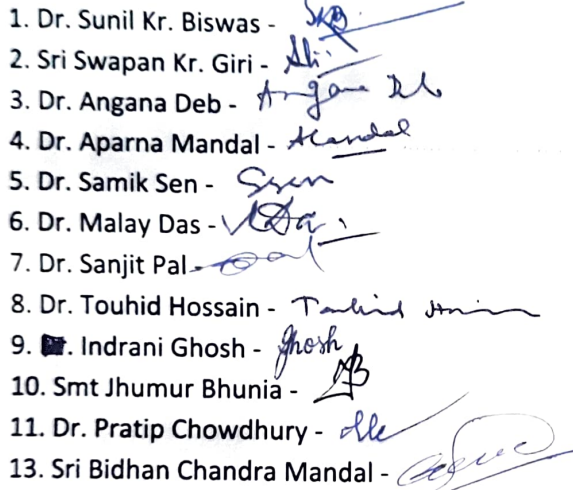 1. Dr. Sunil Kr. Biswas - SKB
2. Sri Swapan Kr. Giri -
3. Dr. Angana Deb - Angana Deb
4. Dr. Aparna Mandal - AMandal
5. Dr. Samik Sen - SSen
6. Dr. Malay Das -
7. Dr. Sanjit Pal -
8. Dr. Touhid Hossain - Touhid
9. . Indrani Ghosh - Ghosh
10. Smt Jhumur Bhunia -
11. Dr. Pratip Chowdhury -
13. Sri Bidhan Chandra Mandal -